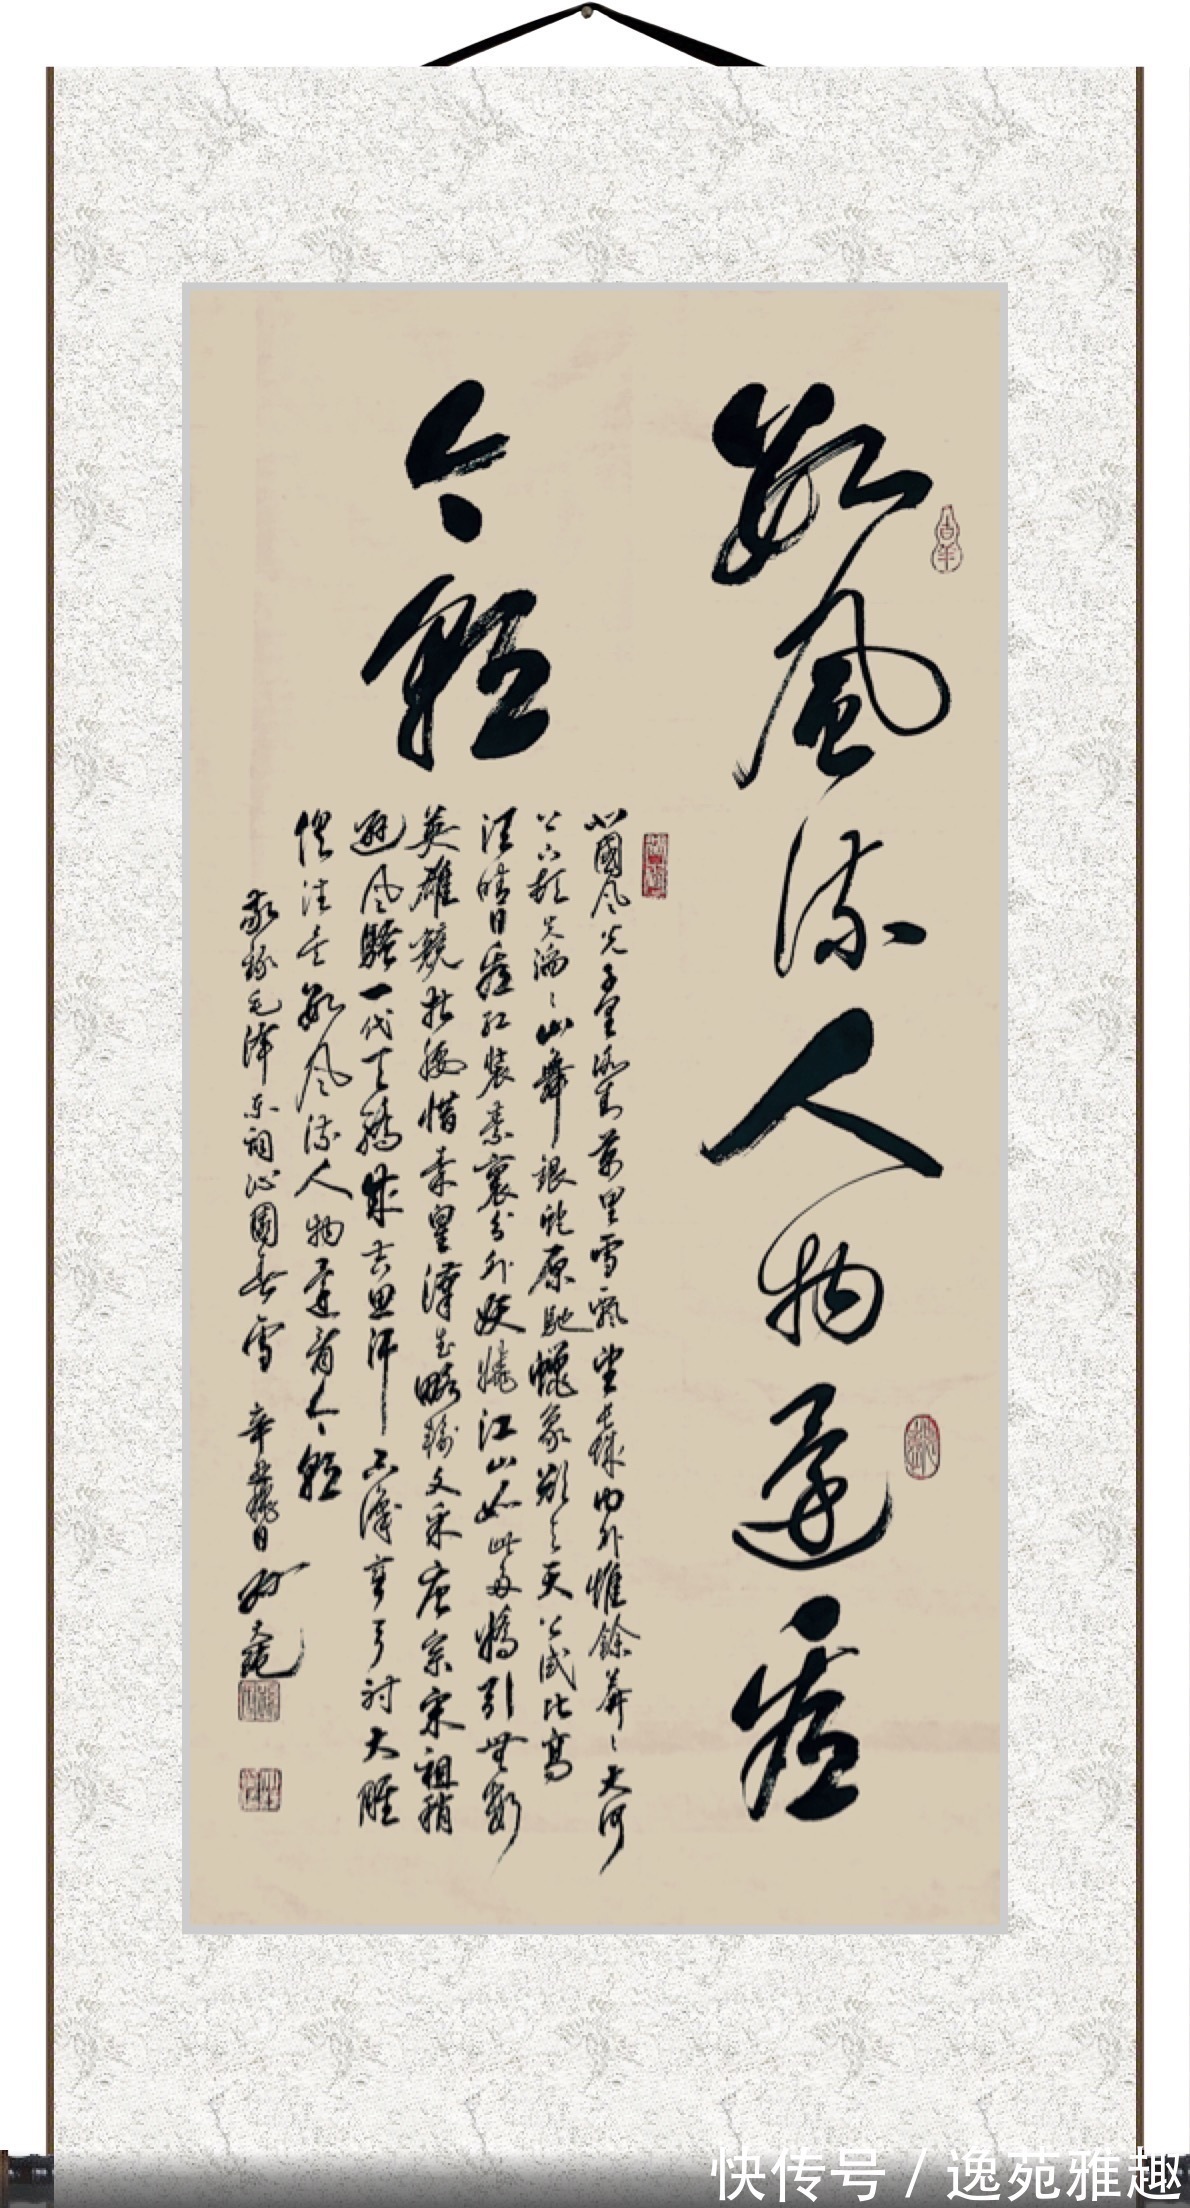 数风流人物还看
今朝
北國风光千里冰封萬里雪飘望长城内外惟餘莽〻大河
上下顿失滔〻山舞银蛇原驰蠟象欲与天公试比高
须晴日看红装素裹分外妖娆江山如此多嬌引無数
英雄競折腰惜秦皇漢武略输文采唐宗宋祖稍
逊风騷一代天骄成吉思汗
大雕
俱往矣数风流人物还看今朝
敬録毛泽东词沁園春雪 辛丑
日
吉羊
快传号 / 逸苑雅趣